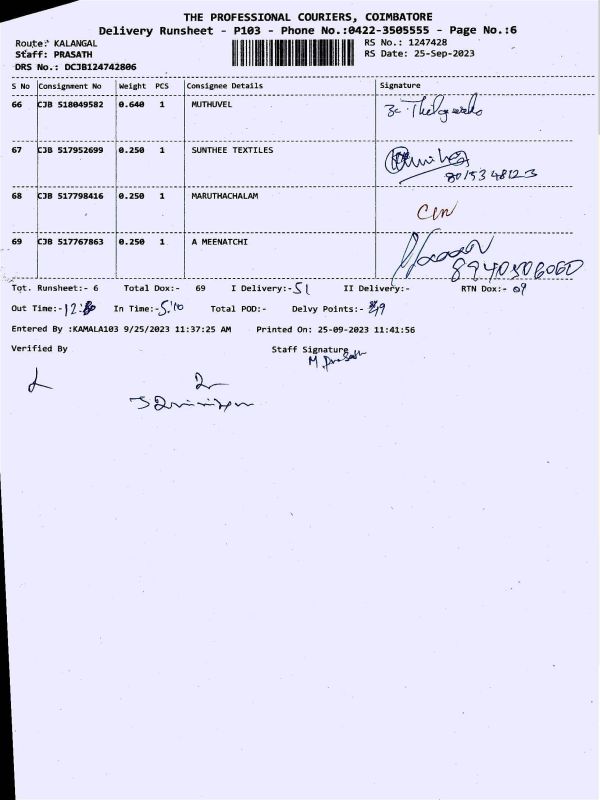 THE PROFESSIONAL COURIERS, COIMBATORE
Delivery Runsheet - P103 - Phone No.:0422-3505555 - Page No.:6
Route: KALANGAL RS No.: 1247428
Staff: PRASATH RS Date: 25-Sep-2023
DRS No.: DCJB124742806
S No Consignment No Weight PCS Consignee Details Signature
66 CJB 518049582 0.640 1 MUTHUVEL
67 CJB 517952699 0.250 1 SUNTHEE TEXTILES
8015348123
68 CJB 517798416 0.250 1 MARUTHACHALAM
69 CJB 517767863 0.250 1 A MEENATCHI
8940506060
Tot. Runsheet:- 6 Total Dox:- 69 I Delivery:- 51 II Delivery:- RTN Dox:- 09
Out Time:- In Time:- 5:10 Total POD:- Delvy Points:-
Entered By :KAMALA103 9/25/2023 11:37:25 AM Printed On: 25-09-2023 11:41:56
Verified By Staff Signature
M. Prasath